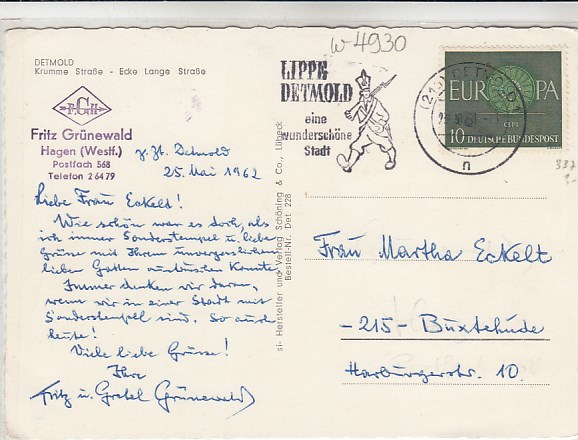 w-4930
DETMOLD
Krumme Straße - Ecke Lange Straße
F.G.H
Fritz Grünewald
Hagen (Westf.)
Postfach 568
Telefon 26479
z. Zt. Detmold
25. Mai 1962
Liebe Frau Eckelt!
Wie schön war es doch, als
ich immer Sonderstempel u. liebe
Grüße mit Ihrem unvergesslichen
lieben Gatten austauschen konnte
Immer denken wir daran,
wenn wir in einer Stadt mit
Sonderstempel sind. So auch
heute!
Viele liebe Grüsse!
Ihre
Fritz u. Gretel Grünewald
si- Hersteller und Verlag Schöning & Co., Lübeck
Bestell-Nr. Det 228
LIPPE
DETMOLD
eine
wunderschöne
Stadt
(21a) DETMOLD
n
EUROPA
CEPT
10 DEUTSCHE BUNDESPOST
337
Frau Martha Eckelt
-215- Buxtehude
Harburgerstr. 10.